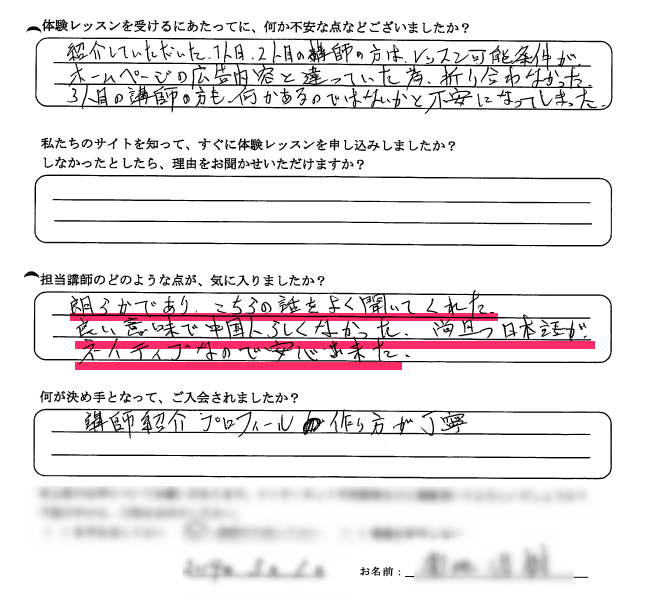 体験レッスンを受けるにあたってに、何か不安な点などございましたか？
紹介していただいた、1人目、2人目の講師の方は、レッスン可能条件が、
ホームページの広告内容と違っていた為、折り合わなかった。
3人目の講師の方も、何かあるのではないかと不安になってしまった。
私たちのサイトを知って、すぐに体験レッスンを申し込みしましたか？
しなかったとしたら、理由をお聞かせいただけますか？
担当講師のどのような点が、気に入りましたか？
朗らかであり、こちらの話をよく聞いてくれた。
良い意味で中国人らしくなかった、尚且つ日本語が、
ネイティブなので安心出来た。
何が決め手となって、ご入会されましたか？
講師紹介プロフィールの作り方が丁寧
お名前：